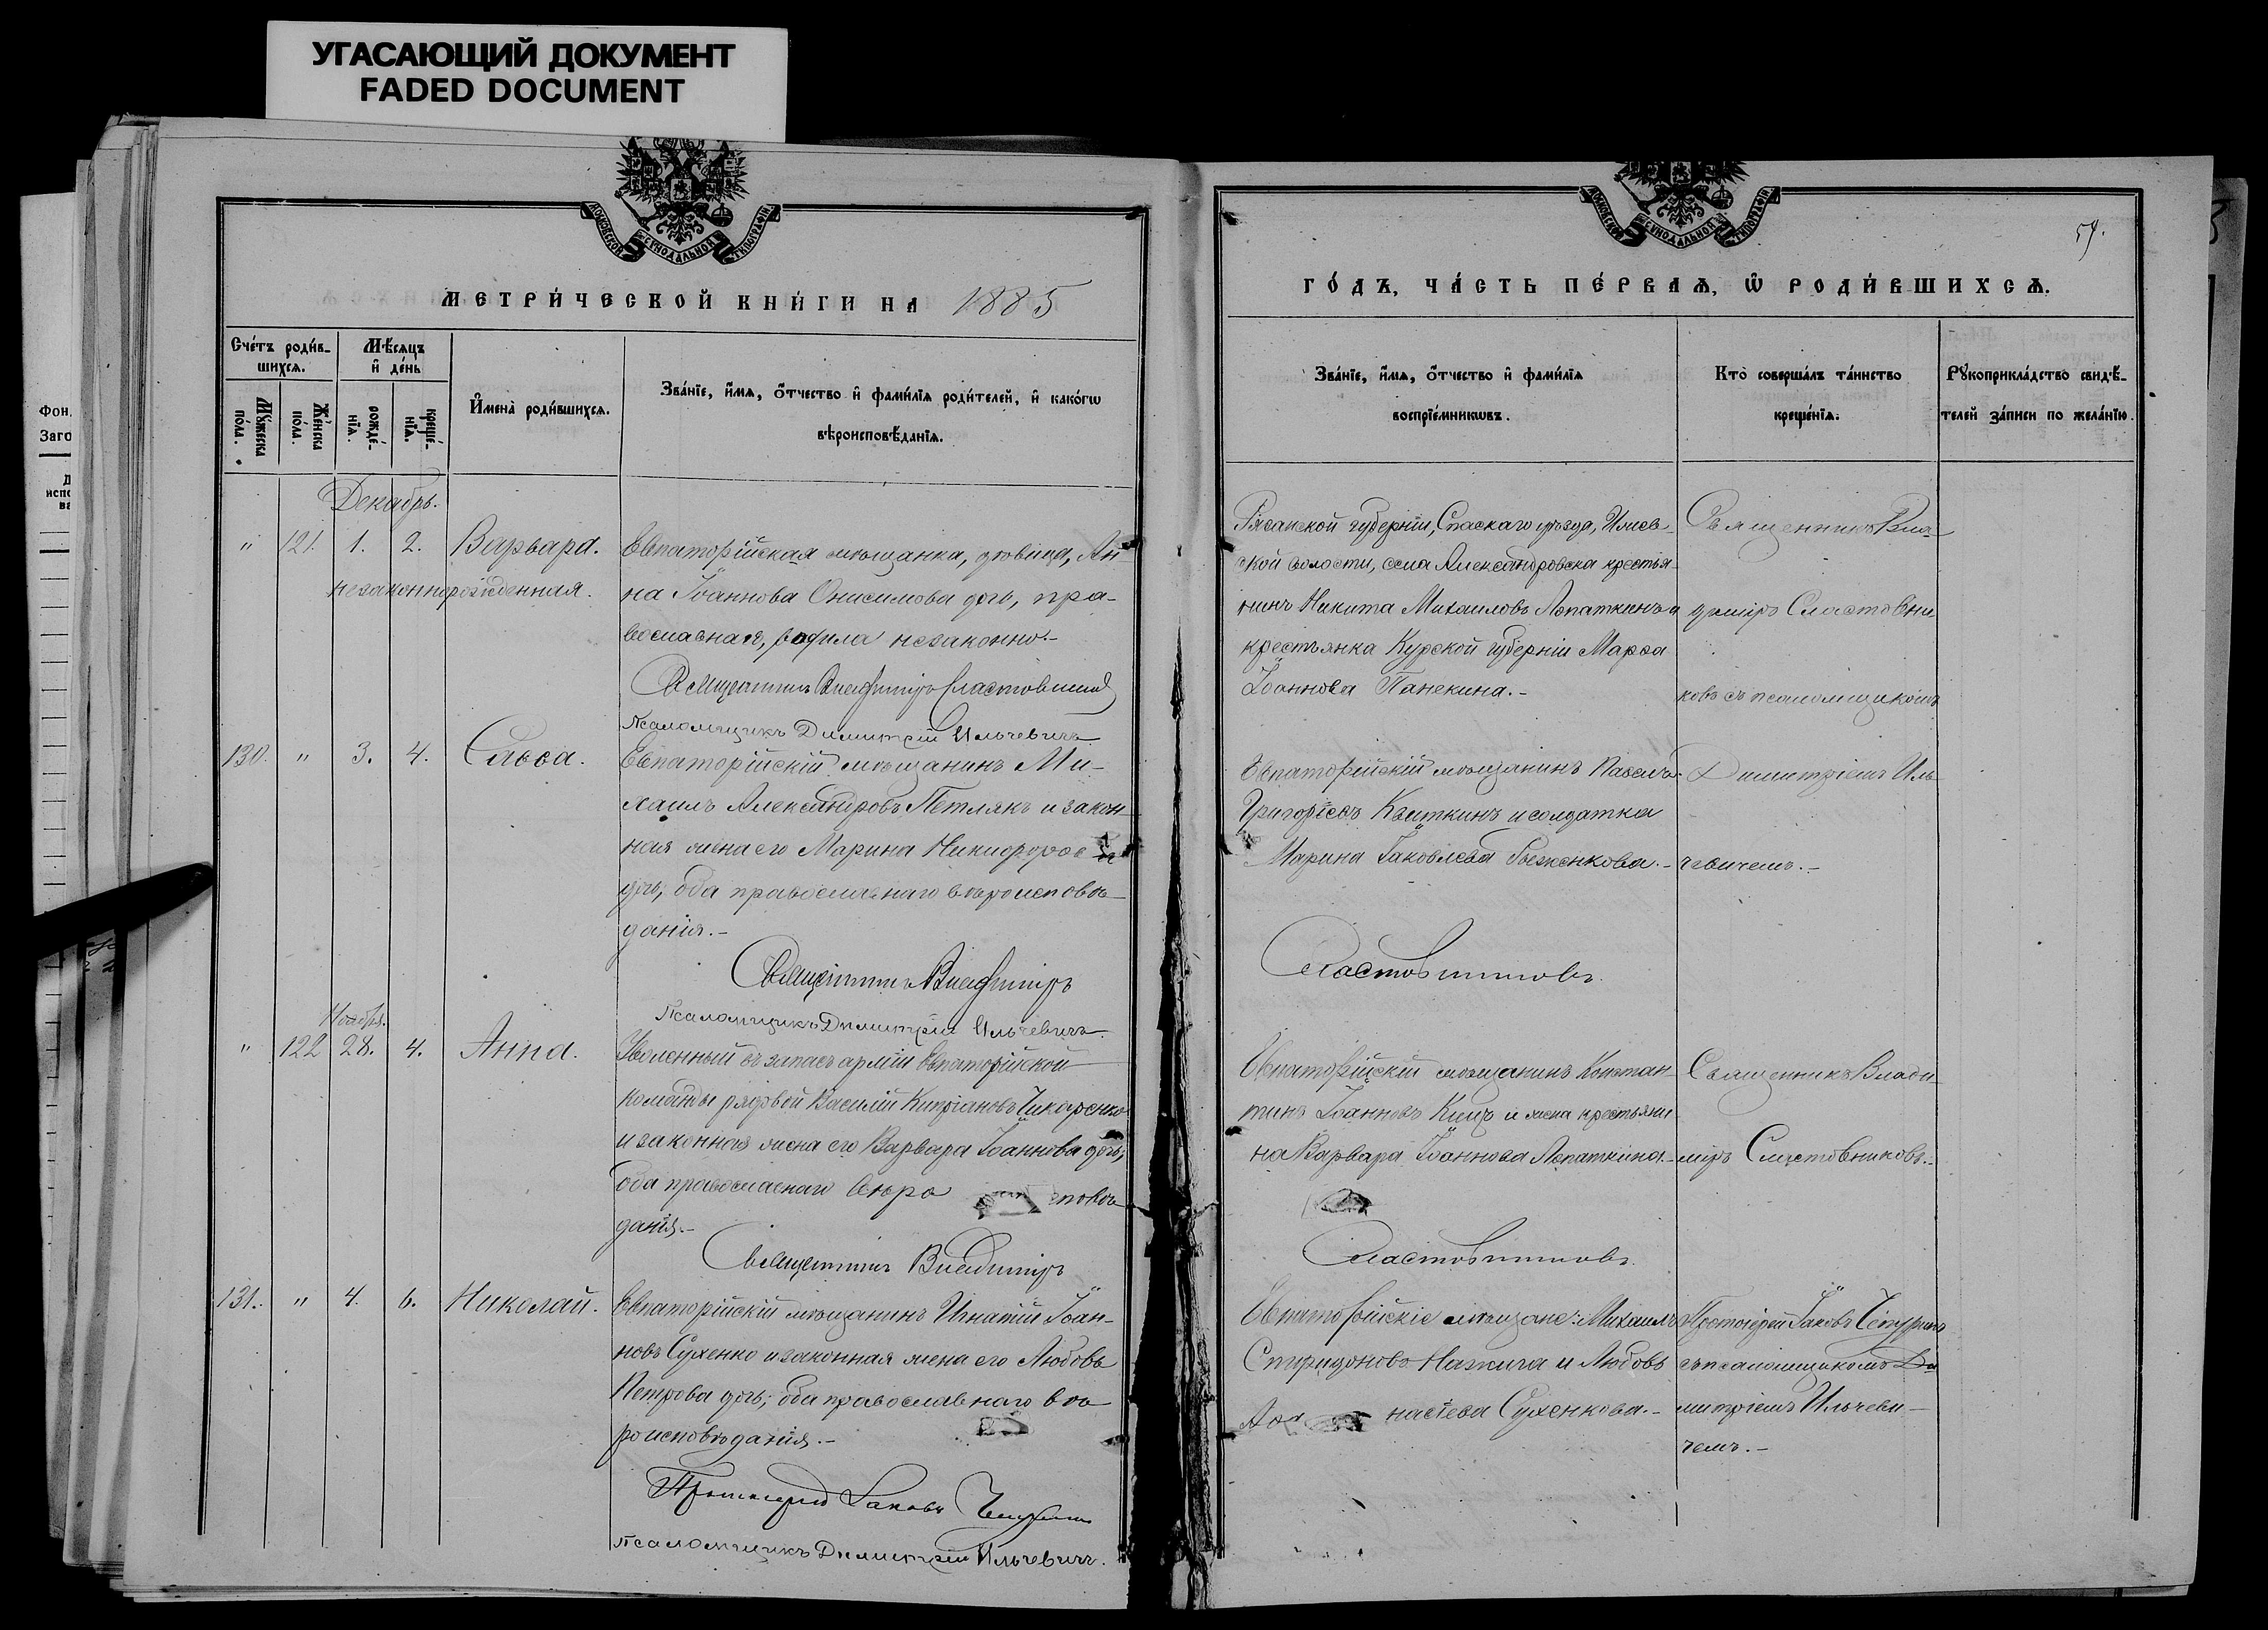 УГАСАЮЩИЙ ДОКУМЕНТ
FADED DOCUMENT
МОСКОВСКОЙ СѴНОДАЛЬНОЙ ТИПОГРАФІИ
МЕТРИ́ЧЕСКОЙ КНИ́ГИ НА 1885
Сче́тъ роди́в-
шихсѧ.
Мѣ́сѧцъ
и҆ де́нь
Мꙋ́жеска
по́ла.
Же́нска
по́ла.
рожде́-
нїѧ.
креще́-
нїѧ.
И҆мена̀ роди́вшихсѧ.
Зва́нїе, и҆́мѧ, ѻ҆́тчество и҆ фами́лїѧ роди́телей, и҆ како́гѡ
вѣроисповѣ́данїѧ.
Декабрь.
" 121. 1. 2. Варвара.
незаконнорожденная.
Евпаторійская мѣщанка, дѣвица, Ан-
на Іоаннова Онисимова дочь, пра-
вославная, родила незаконно.-
Священникъ Владиміръ Сластовниковъ
Псаломщикъ Димитрій Ильчевичъ
130. " 3. 4. Савва.
Евпаторійскій мѣщанинъ Ми-
хаилъ Александровъ Петлякъ и закон-
ная жена его Марина Никифорова
дочь, оба православнаго вѣроисповѣ-
данія.-
Священникъ Владиміръ
Псаломщикъ Димитрій Ильчевичъ.
Ноября.
" 122 28. 4. Анна.
Уволенный въ запасъ арміи Евпаторійской
команды рядовой Василій Кипріановъ Чикаренко
и законная жена его Варвара Іоаннова дочь,
оба православнаго вѣро повѣ-
данія.-
Священникъ Владиміръ
131. " 4. 6. Николай.
Евпаторійскій мѣщанинъ Игнатій Іоан-
новъ Сухенко и законная жена его Любовь
Петрова дочь, оба православнаго вѣ-
роисповѣданія.-
Протоіерей Іаковъ
Псаломщикъ Димитрій Ильчевичъ.
57.
ГО́ДЪ, ЧА́СТЬ ПЕ́РВАѦ, Ѡ҆ РОДИ́ВШИХСѦ.
Зва́нїе, и҆́мѧ, ѻ҆́тчество и҆ фами́лїѧ
воспрїе́мникѡвъ.
Кто̀ соверша́лъ та́инство
креще́нїѧ.
Рꙋкоприкла́дство свидѣ́-
телей за́писи по жела́нїю.
Рязанской губерніи, Спаскаго уѣзда,
ской волости, села Александровска крестья-
нинъ Никита Михаиловъ Лопаткинъ и
крестьянка Курской губерніи Марѳа
Іоаннова Панекина.-
Священникъ Вла-
диміръ Сластовни-
ковъ съ псаломщикомъ
Евпаторійскій мѣщанинъ Павелъ
Григоріевъ Квиткинъ и солдатка
Марина Іаковлева
Димитріемъ Иль-
чевичемъ.-
Сластовниковъ.
Евпаторійскій мѣщанинъ Констан-
тинъ Іоанновъ и жена крестьяни-
на Варвара Іоаннова Лопаткина.-
Священникъ Влади-
міръ Сластовниковъ.-
Сластовниковъ.
Евпаторійскіе мѣщане: Михаилъ
Спиридоновъ и Любовь
настева Сухенкова.-
Протоіерей Іаковъ
съ псаломщикомъ Ди-
митріемъ Ильчеви-
чемъ.-
Фон.
Заго